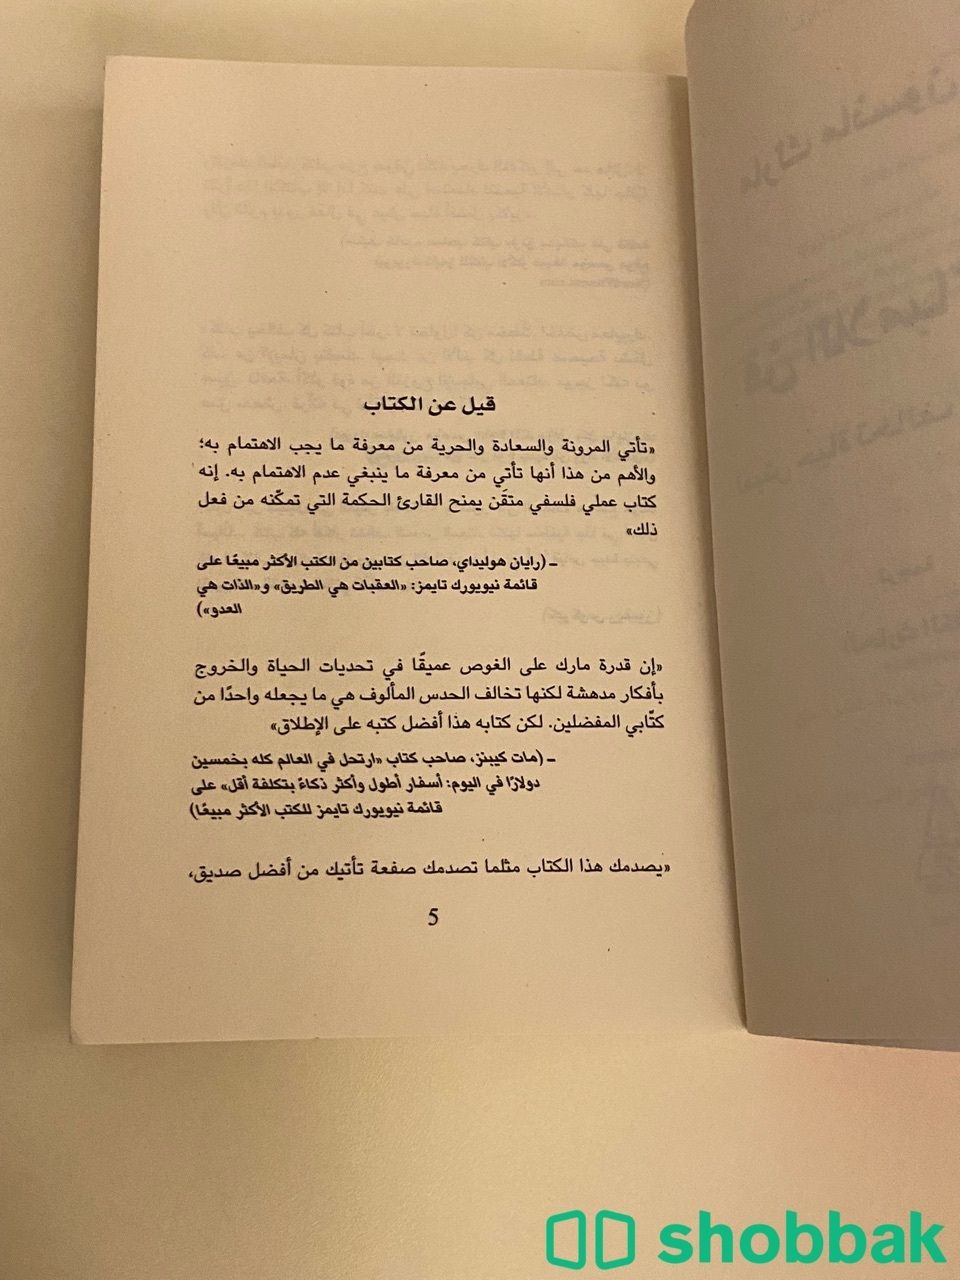 قيل عن الكتاب
«تأتي المرونة والسعادة والحرية من معرفة ما يجب الاهتمام به؛
والأهم من هذا أنها تأتي من معرفة ما ينبغي عدم الاهتمام به. إنه
كتاب عملي فلسفي متقَن يمنح القارئ الحكمة التي تمكّنه من فعل
ذلك»
ـ (رايان هوليداي، صاحب كتابين من الكتب الأكثر مبيعًا على
قائمة نيويورك تايمز: «العقبات هي الطريق» و«الذات هي
العدو»)
«إن قدرة مارك على الغوص عميقًا في تحديات الحياة والخروج
بأفكار مدهشة لكنها تخالف الحدس المألوف هي ما يجعله واحدًا من
كتّابي المفضلين. لكن كتابه هذا أفضل كتبه على الإطلاق»
ـ (مات كيبنز، صاحب كتاب «ارتحل في العالم كله بخمسين
دولارًا في اليوم: أسفار أطول وأكثر ذكاءً بتكلفة أقل» على
قائمة نيويورك تايمز للكتب الأكثر مبيعًا)
«يصدمك هذا الكتاب مثلما تصدمك صفعة تأتيك من أفضل صديق،
5
shobbak